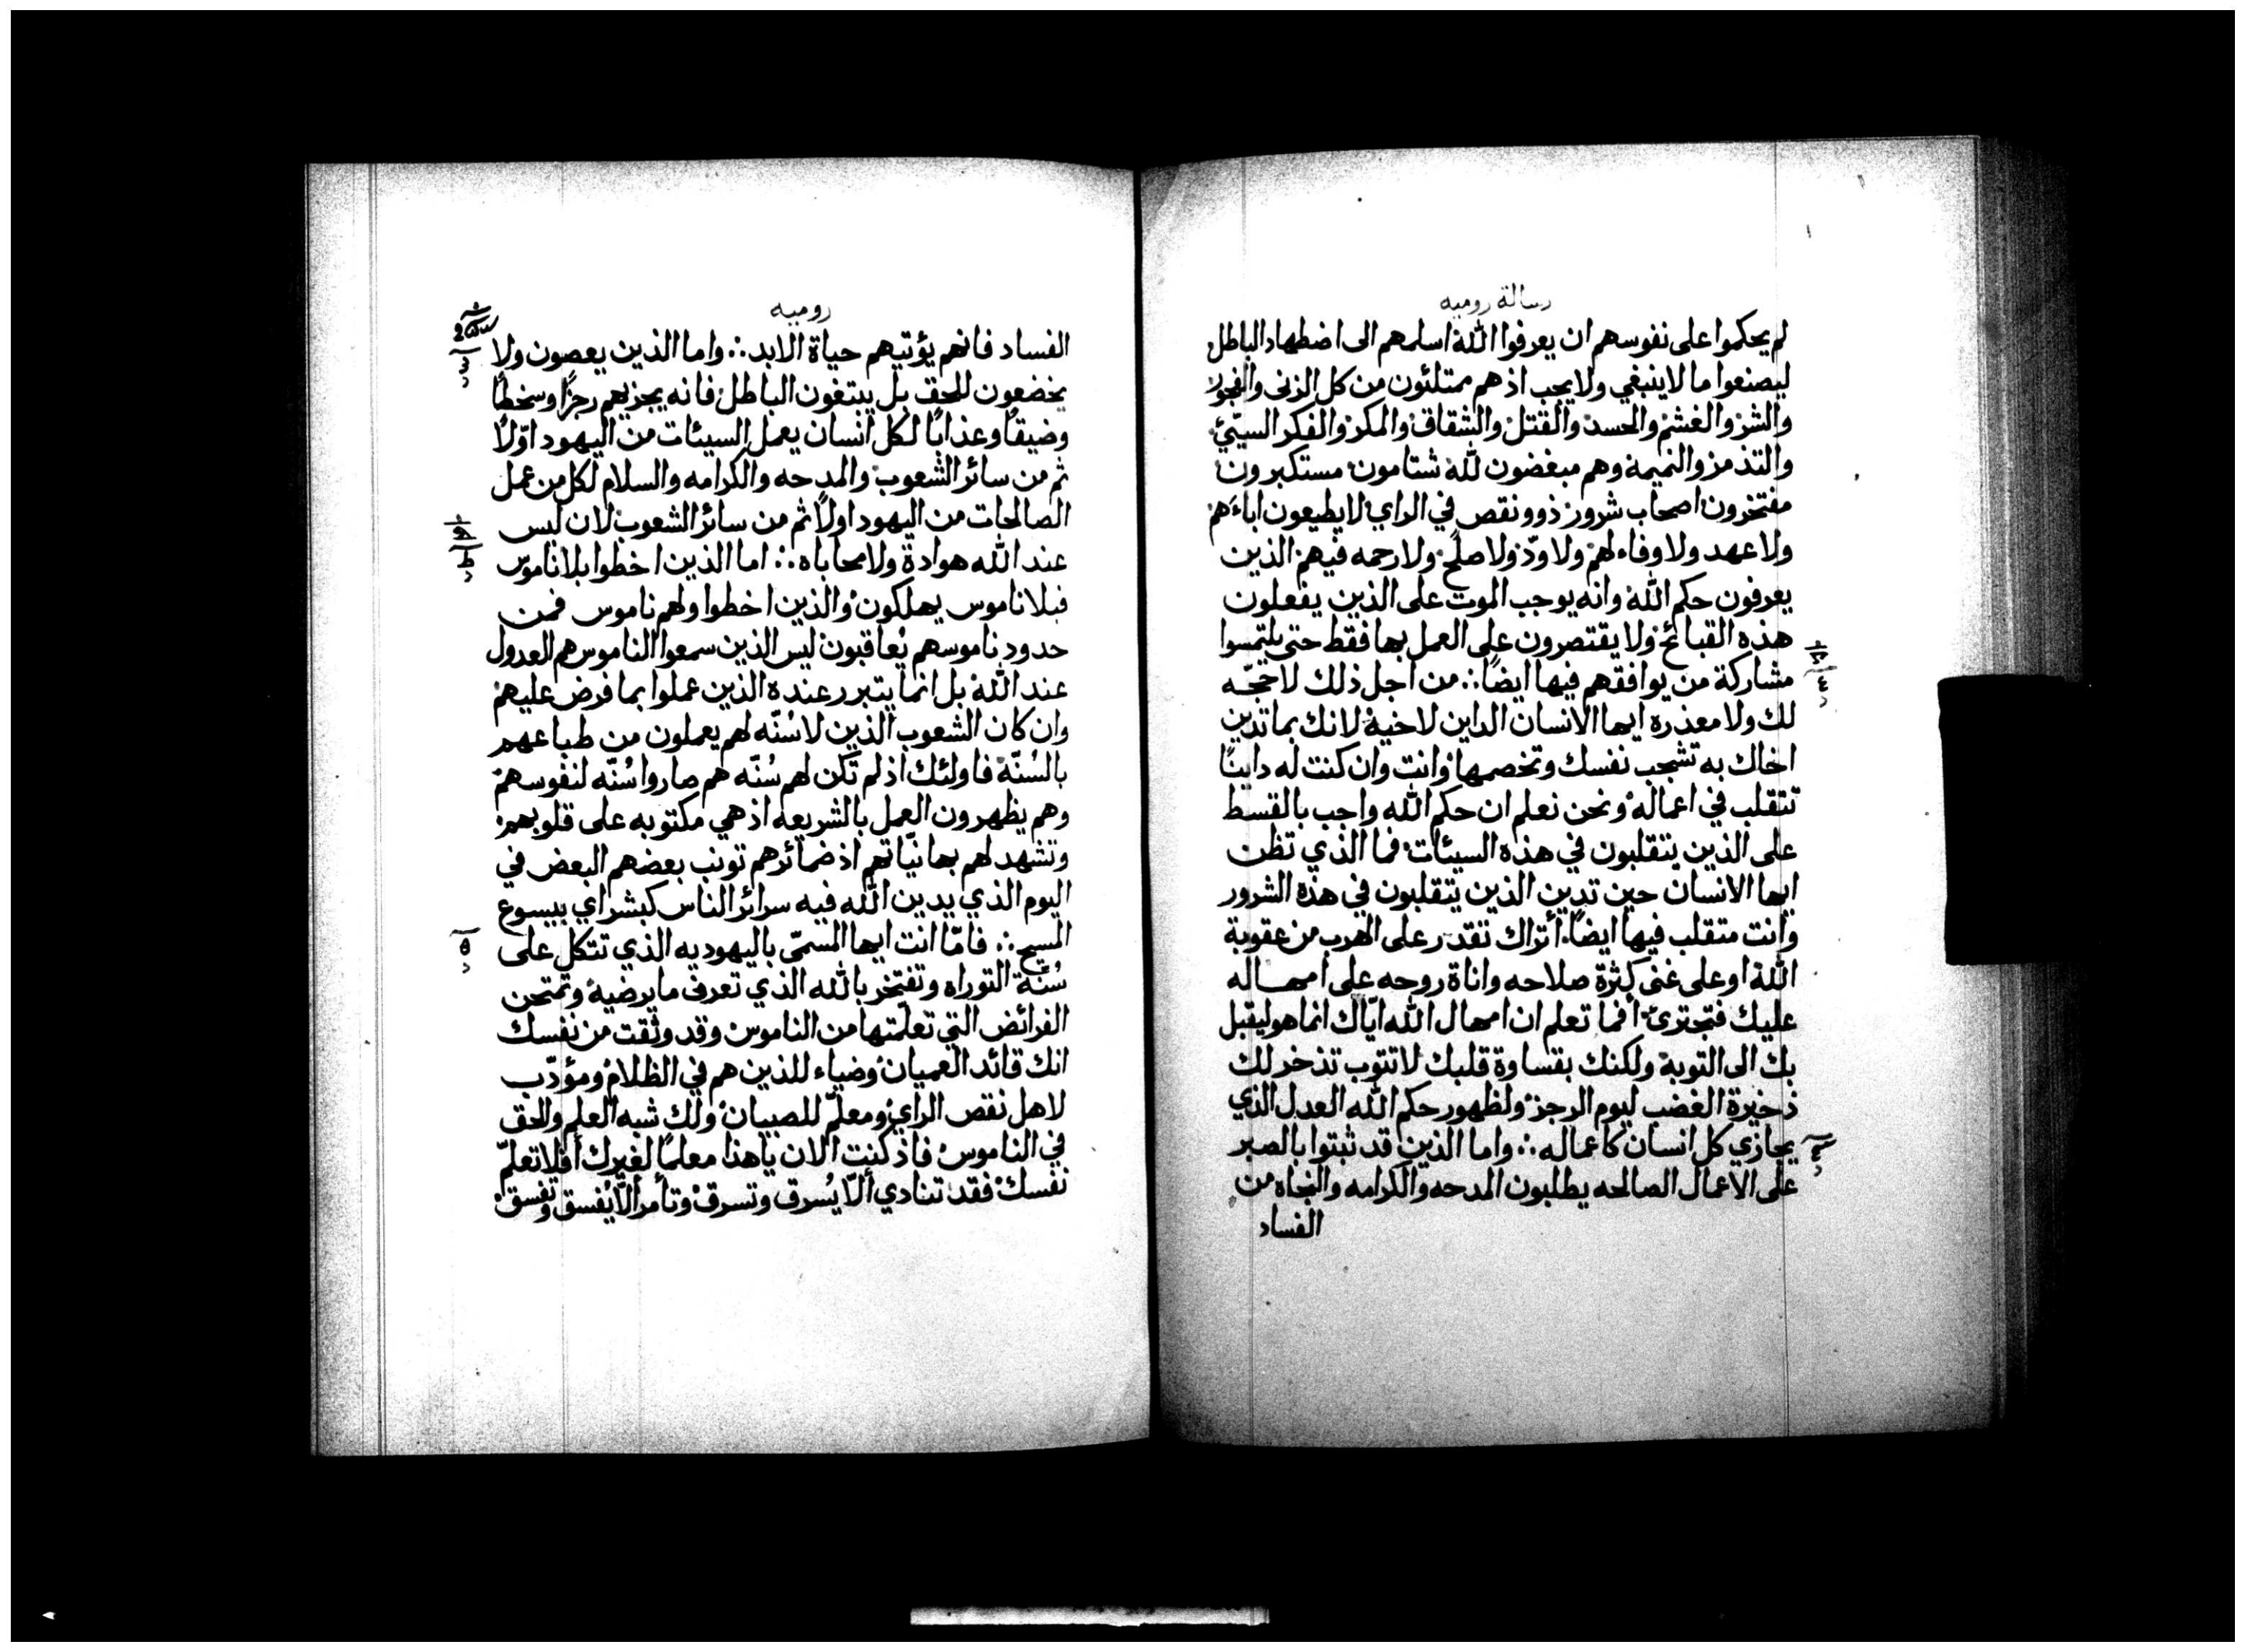 رسالة روميه
لم يحكموا على نفوسهم ان يعرفوا الله اسلمهم الى اضطهاد الباطل
ليصنعوا ما لا ينبغي ولا يجب اذ هم ممتلئون من كل الزنى والفجور
والشر والغشم والحسد والقتل والشقاق والمكر والفكر السيّئ
والتذمر والنميمة وهم مبغضون لله شتامون مستكبرون
مفتخرون اصحاب شرور ذوو نقص في الراي لا يطيعون اباءهم
ولا عهد ولا وفاء لهم ولا ودّ ولا صلح ولا رحمه فيهم الذين
يعرفون حكم الله وانه يوجب الموت على الذين يفعلون
هذه القبائح ولا يقتصرون على العمل بها فقط حتى يلتمسوا
مشاركة من يوافقهم فيها ايضًا ∴ من اجل ذلك لا حجّه
لك ولا معذره ايها الانسان الداين لاخيه لانك بما تدين
اخاك به تشجب نفسك وتخصمها وانت وان كنت له داينًا
تتقلب في اعماله ونحن نعلم ان حكم الله واجب بالقسط
على الذين يتقلبون في هذه السيئات فما الذي تظن
ايها الانسان حين تدين الذين يتقلبون في هذه الشرور
وانت متقلب فيها ايضًا أتراك تقدر على الهرب من عقوبة
الله او على غنى كثرة صلاحه واناة روحه على امهاله
عليك فتجترئ أفما تعلم ان امهال الله ايّاك انما هو ليقبل
بك الى التوبة ولكنك بقساوة قلبك لا تتوب تذخر لك
ذخيرة الغضب ليوم الرجز ولظهور حكم الله العدل الذي
يجازي كل انسان كاعماله ∴ واما الذين قد ثبتوا بالصبر
على الاعمال الصالحه يطلبون المدحه والكرامه والنجاه من
الفساد
روميه
الفساد فانهم يؤتيهم حياة الابد ∴ واما الذين يعصون ولا
يخضعون للحق بل يبتغون الباطل فانه يجزيهم رجزًا وسخطًا
وضيقًا وعذابًا لكل انسان يعمل السيئات من اليهود اوّلاً
ثم من سائر الشعوب والمدحه والكرامه والسلام لكل من عمل
الصالحات من اليهود اولاً ثم من سائر الشعوب لان ليس
عند الله هوادة ولا محاباه ∴ اما الذين اخطوا بلا ناموس
فبلا ناموس يهلكون والذين اخطوا ولهم ناموس فمن
حدود ناموسهم يُعاقبون ليس الذين سمعوا الناموس هم العدول
عند الله بل انما يتبرر عنده الذين عملوا بما فرض عليهم
وان كان الشعوب الذين لا سُنّه لهم يعملون من طباعهم
بالسُنّة فاولئك اذ لم تكن لهم سُنّه هم صاروا سُنّه لنفوسهم
وهم يظهرون العمل بالشريعه اذ هي مكتوبه على قلوبهم
وتشهد لهم بها نيّاتهم اذ ضمائرهم تونب بعضهم البعض في
اليوم الذي يدين الله فيه سرائر الناس كبشراي بيسوع
المسيح ∴ فامّا انت ايها المسمّى باليهوديه الذي تتكل على
سُنّة التوراه وتفتخر بالله الذي تعرف ما يرضيه وتمتحن
الفرائض التي تعلّمتها من الناموس وقد وثقت من نفسك
انك قائد العميان وضياء للذين هم في الظلام ومؤدّب
لاهل نقص الراي ومعلّم للصبيان ولك شبه العلم والحق
في الناموس فاذ كنت الان يا هذا معلمًا لغيرك أفلا تعلّم
نفسك فقد تنادي ألاّ يُسرق وتسرق وتأمر ألاّ يُفسق وتفسق